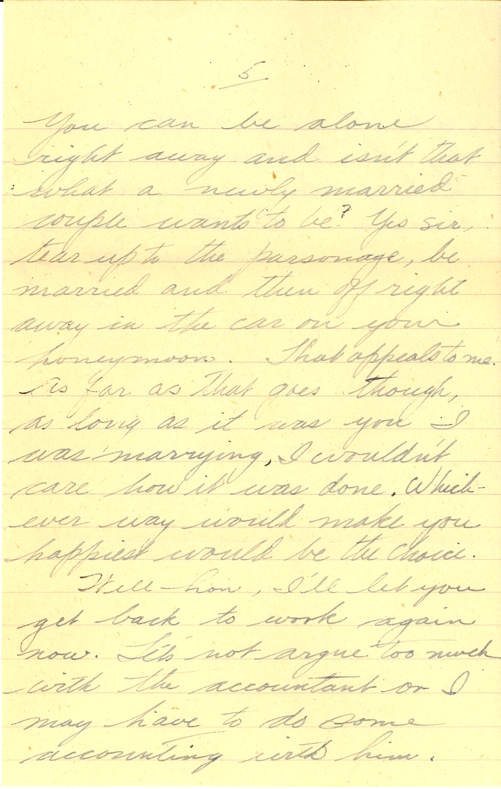 5
You can be alone
right away and isn't that
what a newly married
couple wants to be? Yes sir,
tear up to the parsonage, be
married and then off right
away in the car on your
honeymoon. That appeals to me.
As far as that goes though,
as long as it was you I
was marrying, I wouldn't
care how it was done. Which-
ever way would make you
happiest would be the choice.
Well - hon, I'll let you
get back to work again
now. Let's not argue too much
with the accountant or I
may have to do some
accounting with him.